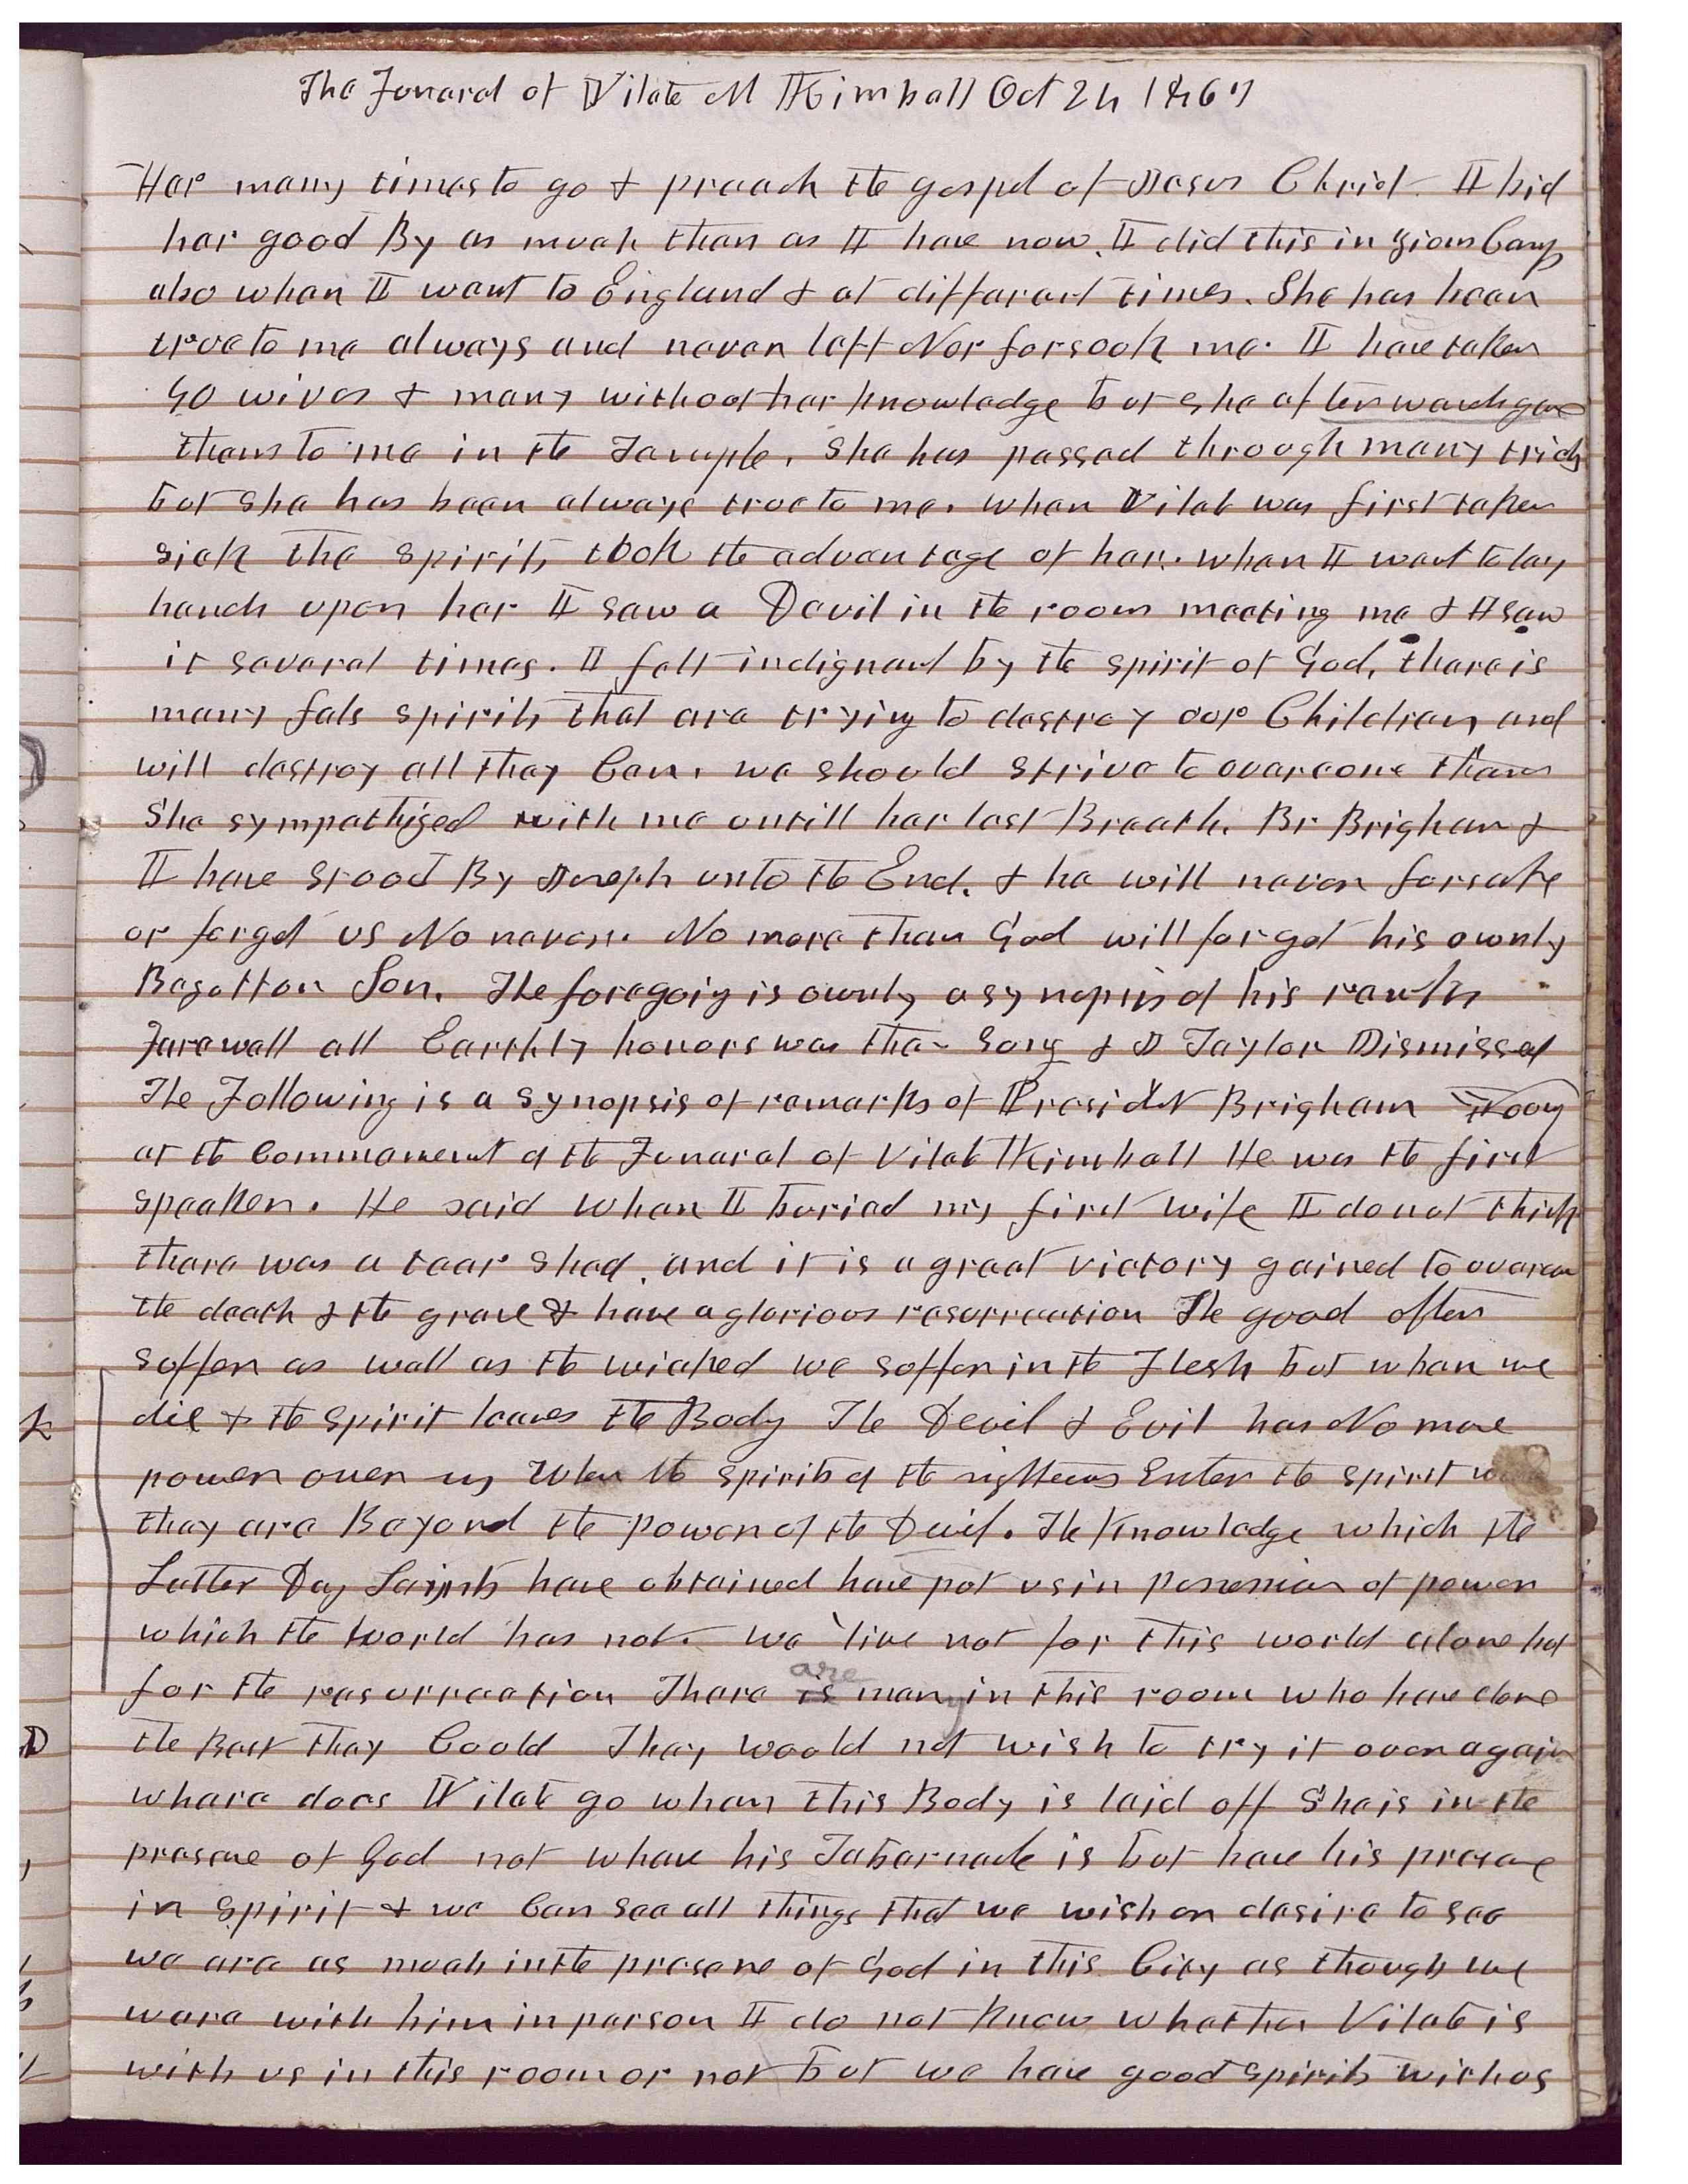 The Funeral of Vilate M Kimball Oct 24 1867
Her many times to go & preach the gospel of Jesus Christ I bid
her good By as much then as I have now. I did this in Zions Camp
also when I went to England & at different times. She has been
true to me always and never left Nor forsook me. I have taken
40 wives & many without her knowledge but she afterwards gave
them to me in the Temple. She has passed through many trials
but she has been always true to me. when Vilate was first taken
sick the spirits took the advantage of her. when I went to lay
hands upon her I saw a Devil in the room meeting me & I saw
it several times. I felt indignant by the spirit of God, there is
many fals spirits that are trying to destroy our Children and
will destroy all they Can. we should strive to overcome them
She sympathized with me untill her last Breath. Br Brigham &
I have stood By Joseph unto the End. & he will never forsake
or forget us No never. No more than God will forget his ownly
Begotten Son. The foregoing is ownly a synopsis of his remarks
Farewell all Earthly honors was then Sung & J Taylor Dismissed
The Following is a synopsis of remarks of President Brigham Young
at the Commencement of the Funeral of Vilate Kimball He was the first
speaker. He said when I buried my first wife I do not think
there was a tear shed. and it is a great victory gained to overcome
the death & the grave & have a glorious resurrection The good often
suffer as well as the wicked we suffer in the Flesh but when we
die & the spirit leaves the Body The Devil & Evil has No more
power over us When the spirits of the righteous Enter the spirit world
they are Beyond the power of the Devil. The Knowledge which the
Latter Day Saints have obtained have put us in possession of power
which the world has not. we live not for this world alone but
for the resurrection There is are many in this room who have done
the Best they Could They would not wish to try it over again
where does Vilate go when this Body is laid off She is in the
presence of God not where his Tabernacle is but have his presence
in spirit & we Can see all things that we wish or desire to see
we are as much in the presence of God in this City as though we
were with him in person I do not know whether Vilate is
with us in this room or not but we have good spirits with us